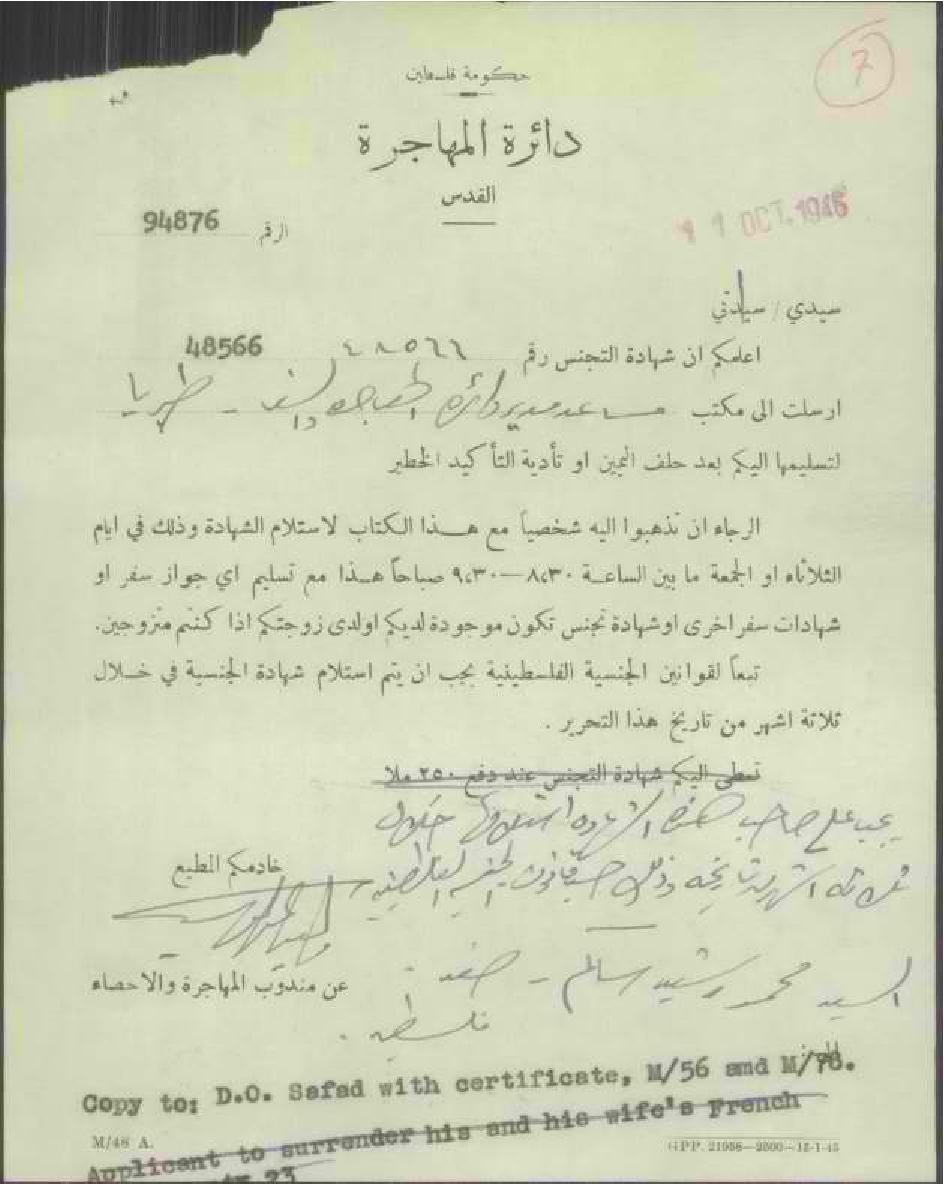 7
حكومة فلسطين
دائرة المهاجرة
القدس
الرقم 94876
11 OCT. 1946
سيدي / سيدتي
اعلمكم ان شهادة التجنس رقم ٤٨٥٦٦ 48566
ارسلت الى مكتب مساعد مدير دائرة المهاجرة والسفر - طبريا
لتسليمها اليكم بعد حلف اليمين او تأدية التأكيد الخطير
الرجاء ان تذهبوا اليه شخصياً مع هــذا الكتاب لاستلام الشهادة وذلك في ايام
الثلاثاء او الجمعة ما بين الساعـة ٨،٣٠—٩،٣٠ صباحاً هـذا مع تسليم اي جواز سفر او
شهادات سفر اخرى او شهادة تجنس تكون موجودة لديكم او لدى زوجتكم اذا كنتم متزوجين.
تبعاً لقوانين الجنسية الفلسطينية يجب ان يتم استلام شهادة الجنسية في خـلال
ثلاثة اشهر من تاريخ هذا التحرير .
تعطى اليكم شهادة التجنس عند دفع ٢٥٠ ملا
يجب على صاحب هذه الشهادة استلامها خلال
ثلاثة اشهر من تاريخه وذلك حسب قانون الجنسية الفلسطينية
خادمكم المطيع
عن مندوب المهاجرة والاحصاء
السيد محمد رشيد سالم - صفد
فلسطين .
Copy to: D.O. Safad with certificate, M/56 and M/78.
Applicant to surrender his and his wife's French
M/48 A.
GPP. 21958—2500—15-1-45
23